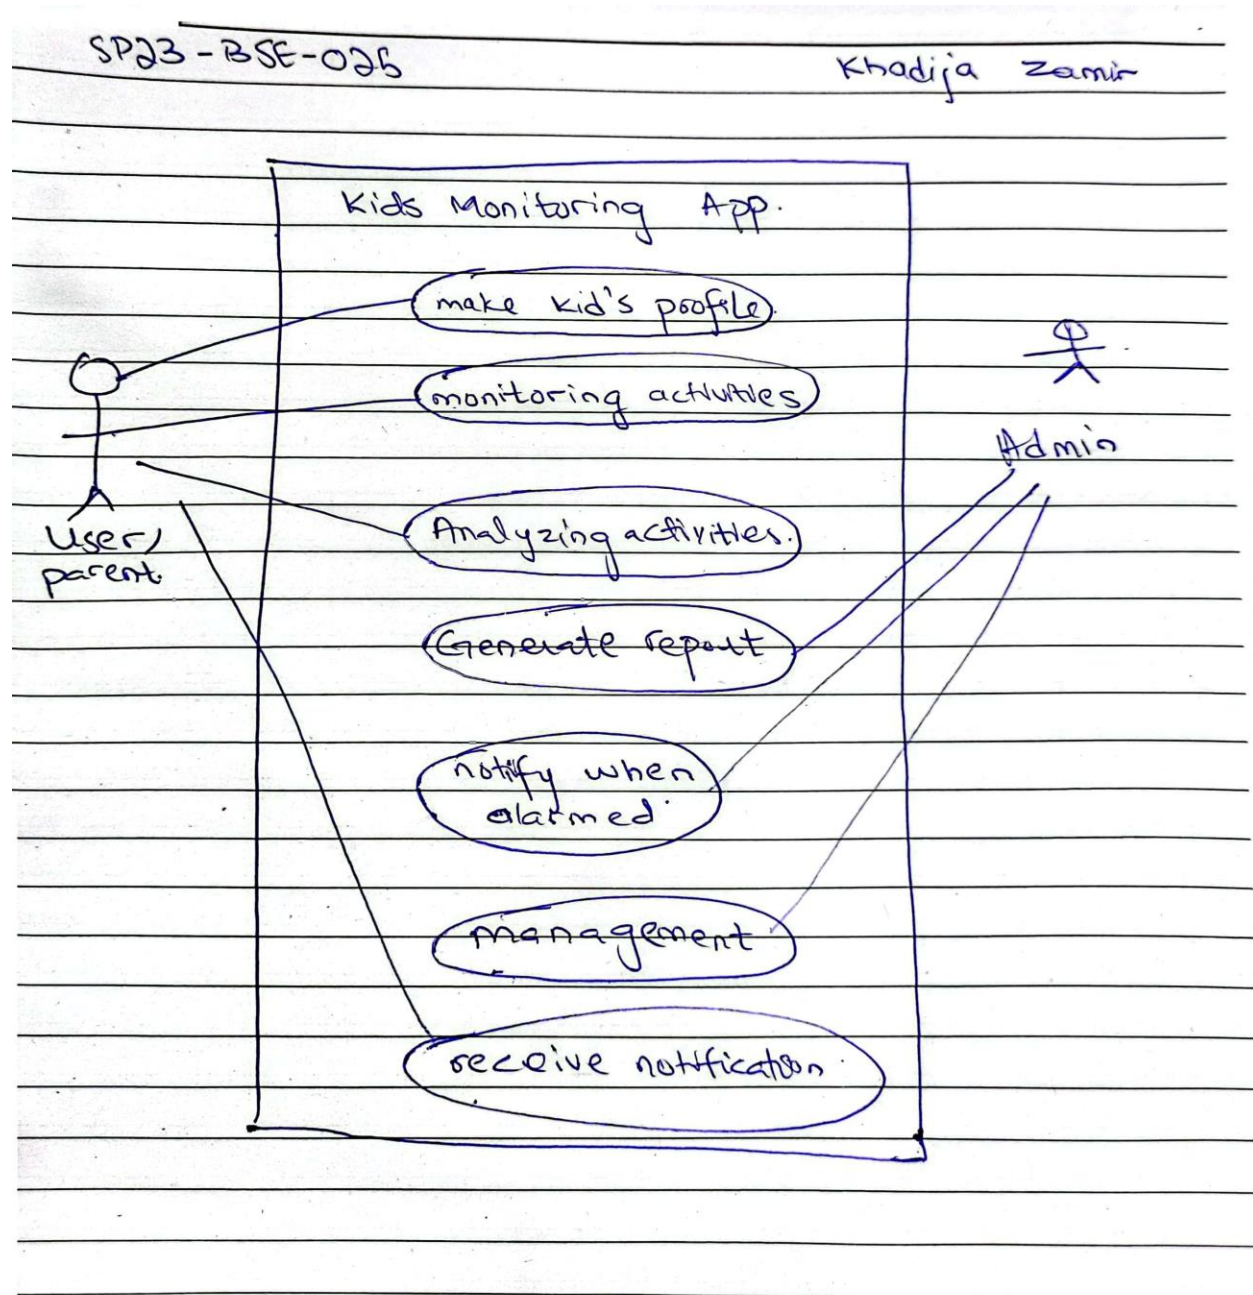 SP23-BSE-025
Khadija Zamir
Kids Monitoring App.
make kid's profile
monitoring activities
Admin
User/
parent.
Analyzing activities.
Generate report
notify when
alarmed
management
receive notification